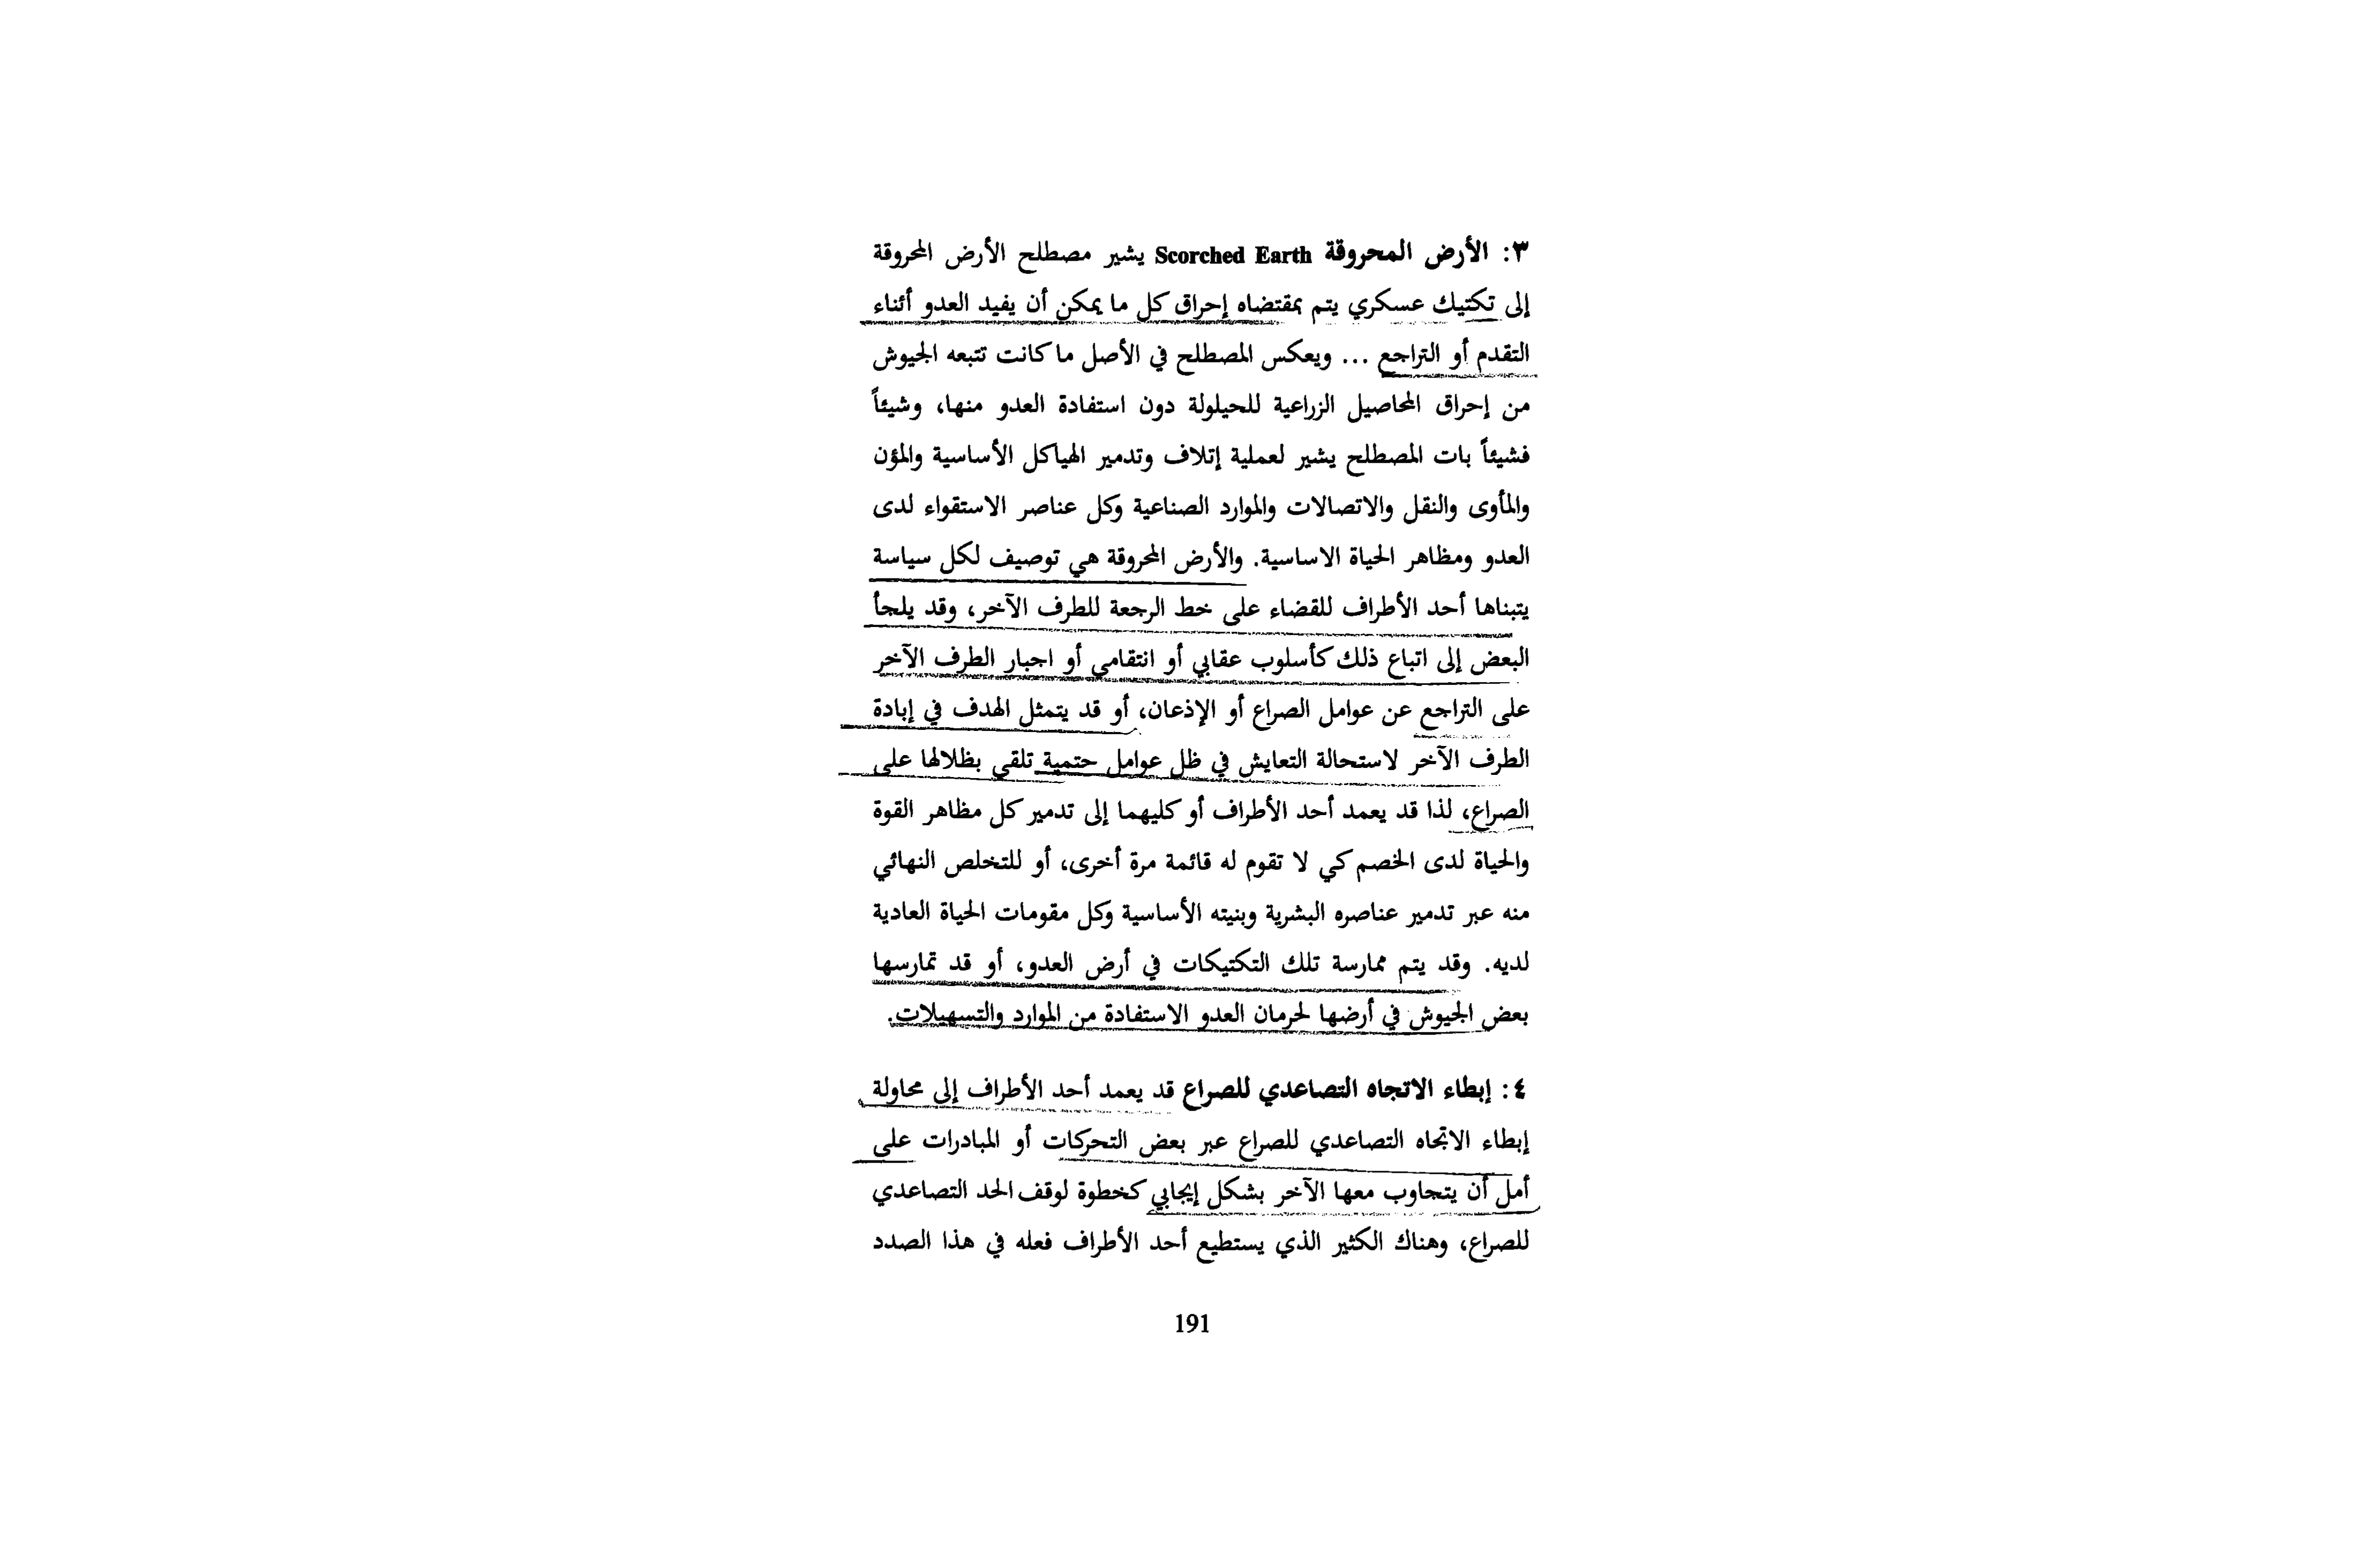 ٣: الأرض المحروقة Scorched Earth يشير مصطلح الأرض المحروقة
إلى تكتيك عسكري يتم بمقتضاه إحراق كل ما يمكن أن يفيد العدو أثناء
التقدم أو التراجع ... ويعكس المصطلح في الأصل ما كانت تتبعه الجيوش
من إحراق المحاصيل الزراعية للحيلولة دون استفادة العدو منها، وشيئاً
فشيئاً بات المصطلح يشير لعملية إتلاف وتدمير الهياكل الأساسية والمؤن
والمأوى والنقل والاتصالات والموارد الصناعية وكل عناصر الاستقواء لدى
العدو ومظاهر الحياة الاساسية. والأرض المحروقة هي توصيف لكل سياسة
يتبناها أحد الأطراف للقضاء على خط الرجعة للطرف الآخر، وقد يلجأ
البعض إلى اتباع ذلك كأسلوب عقابي أو انتقامي أو اجبار الطرف الآخر
على التراجع عن عوامل الصراع أو الإذعان، أو قد يتمثل الهدف في إبادة
الطرف الآخر لاستحالة التعايش في ظل عوامل حتمية تلقي بظلالها على
الصراع، لذا قد يعمد أحد الأطراف أو كليهما إلى تدمير كل مظاهر القوة
والحياة لدى الخصم كي لا تقوم له قائمة مرة أخرى، أو للتخلص النهائي
منه عبر تدمير عناصره البشرية وبنيته الأساسية وكل مقومات الحياة العادية
لديه. وقد يتم ممارسة تلك التكتيكات في أرض العدو، أو قد تمارسها
بعض الجيوش في أرضها لحرمان العدو الاستفادة من الموارد والتسهيلات.
٤: إبطاء الاتجاه التصاعدي للصراع قد يعمد أحد الأطراف إلى محاولة
إبطاء الاتجاه التصاعدي للصراع عبر بعض التحركات أو المبادرات على
أمل أن يتجاوب معها الآخر بشكل إيجابي كخطوة لوقف الحد التصاعدي
للصراع، وهناك الكثير الذي يستطيع أحد الأطراف فعله في هذا الصدد
191